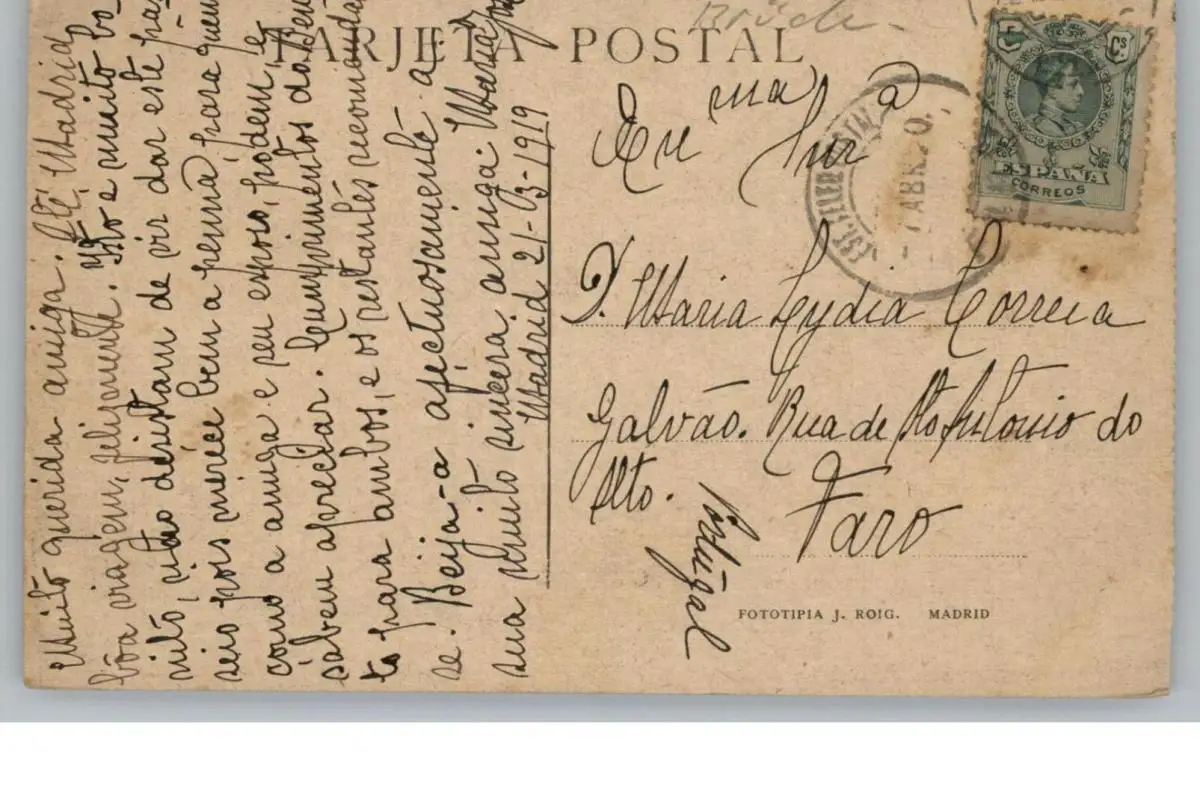 Brück.
TARJETA POSTAL
Muito querida amiga. Até Madrid
bôa viagem, felizmente. Isto é muito bo-
nito, não desistam de vir dar este pas
seio pois merece bem a penna, para quem
como a amiga e seu esposo, podem, e
sabem apreciar. Cumprimentos da
to para ambos, e os restantes recomenda
se. Beija-a afectuosamente a
sua muito sincera amiga.
Madrid 21-03-1919
Exma Snra
D. Maria Lydia Correia
Galvão. Rua de Sto Antonio do
Alto.
Faro
Portugal
5 Cs
ESPAÑA
CORREOS
7 ABR.20.
FOTOTIPIA J. ROIG. MADRID